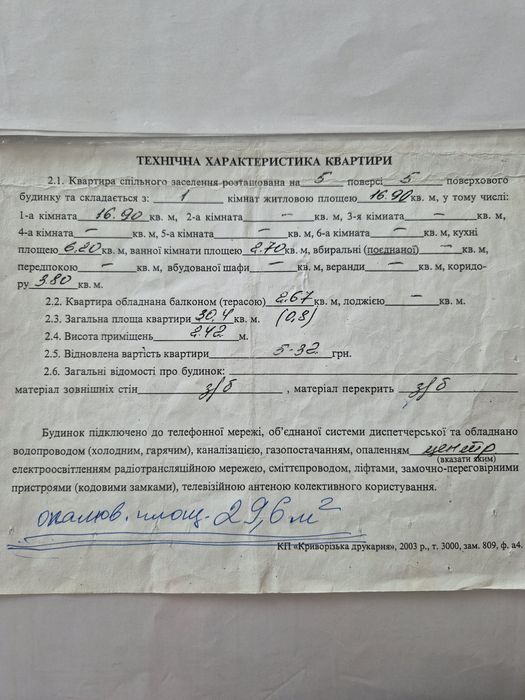 ТЕХНІЧНА ХАРАКТЕРИСТИКА КВАРТИРИ
2.1. Квартира спільного заселення розташована на 5 поверсі 5 поверхового
будинку та складається з: 1 кімнат житловою площею 16.90 кв. м, у тому числі:
1-а кімната 16.90 кв. м, 2-а кімната — кв. м, 3-я кімната — кв. м,
4-а кімната — кв. м, 5-а кімната — кв. м, 6-а кімната — кв. м, кухні
площею 6.20 кв. м, ванної кімнати площею 2.70 кв. м, вбиральні (поєднаної) — кв. м,
передпокою — кв. м, вбудованої шафи — кв. м, веранди — кв. м, коридо-
ру 3.80 кв. м.
2.2. Квартира обладнана балконом (терасою) 2.67 кв. м, лоджією — кв. м.
2.3. Загальна площа квартири 30.4 кв. м. (0,8)
2.4. Висота приміщень 2.42 м.
2.5. Відновлена вартість квартири 5-32 грн.
2.6. Загальні відомості про будинок:
матеріал зовнішніх стін з/б , матеріал перекрить з/б
Будинок підключено до телефонної мережі, об'єднаної системи диспетчерської та обладнано
водопроводом (холодним, гарячим), каналізацією, газопостачанням, опаленням центр
(вказати яким)
електроосвітленням радіотрансляційною мережею, сміттєпроводом, ліфтами, замочно-переговірними
пристроями (кодовими замками), телевізійною антеною колективного користування.
опалюв. площ. 29,6 м²
КП «Криворізька друкарня», 2003 р., т. 3000, зам. 809, ф. а4.